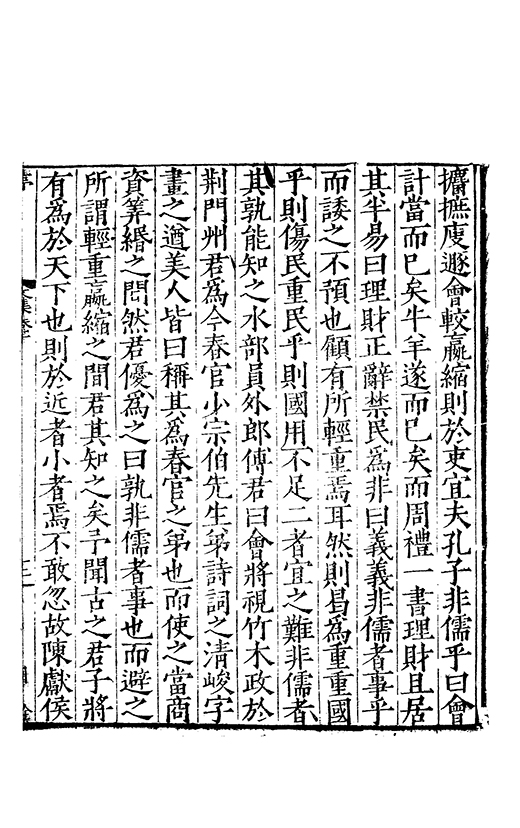 擴摭廋遯會較嬴縮則於吏宜夫孔子非儒乎曰會
計當而已矣牛羊遂而已矣而周禮一書理財且居
其半易曰理財正辭禁民為非曰義義非儒者事乎
而諉之不預也顧有所輕重焉耳然則曷為重重國
乎則傷民重民乎則國用不足二者宜之難非儒者
其孰能知之水部員外郎傅君曰會將視竹木政於
荆門州君為今春官少宗伯先生弟詩詞之清峻字
畫之遒美人皆曰稱其為春官之弟也而使之當商
資筭緡之間然君優為之曰孰非儒者事也而避之
所謂輕重嬴縮之間君其知之矣予聞古之君子將
有為於天下也則於近者小者焉不敢忽故陳獻侯